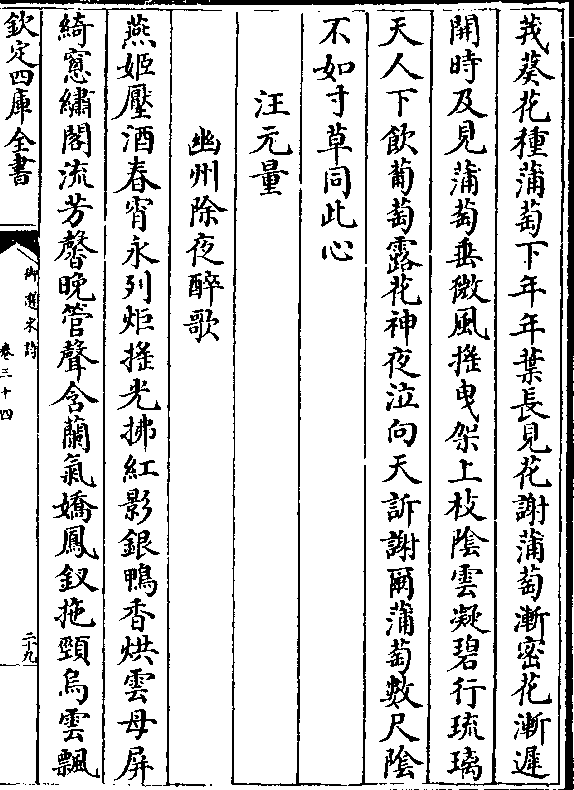 莪葵花種蒲萄下年年葉長見花謝蒲萄漸密花漸遲
開時及見蒲萄垂微風搖曳架上枝陰雲凝碧行琉璃
天人下飲葡萄露花神夜泣向天訴謝爾蒲萄數尺陰
不如寸草同此心
汪元量
幽州除夜醉歌
燕姬壓酒春宵永列炬搖光拂紅影銀鴨香烘雲母屏
綺窻繡閣流芳馨晚管聲含蘭氣嬌鳳釵拖頸烏雲飄
欽定四庫全書
御選宋詩
卷三十四
二十九